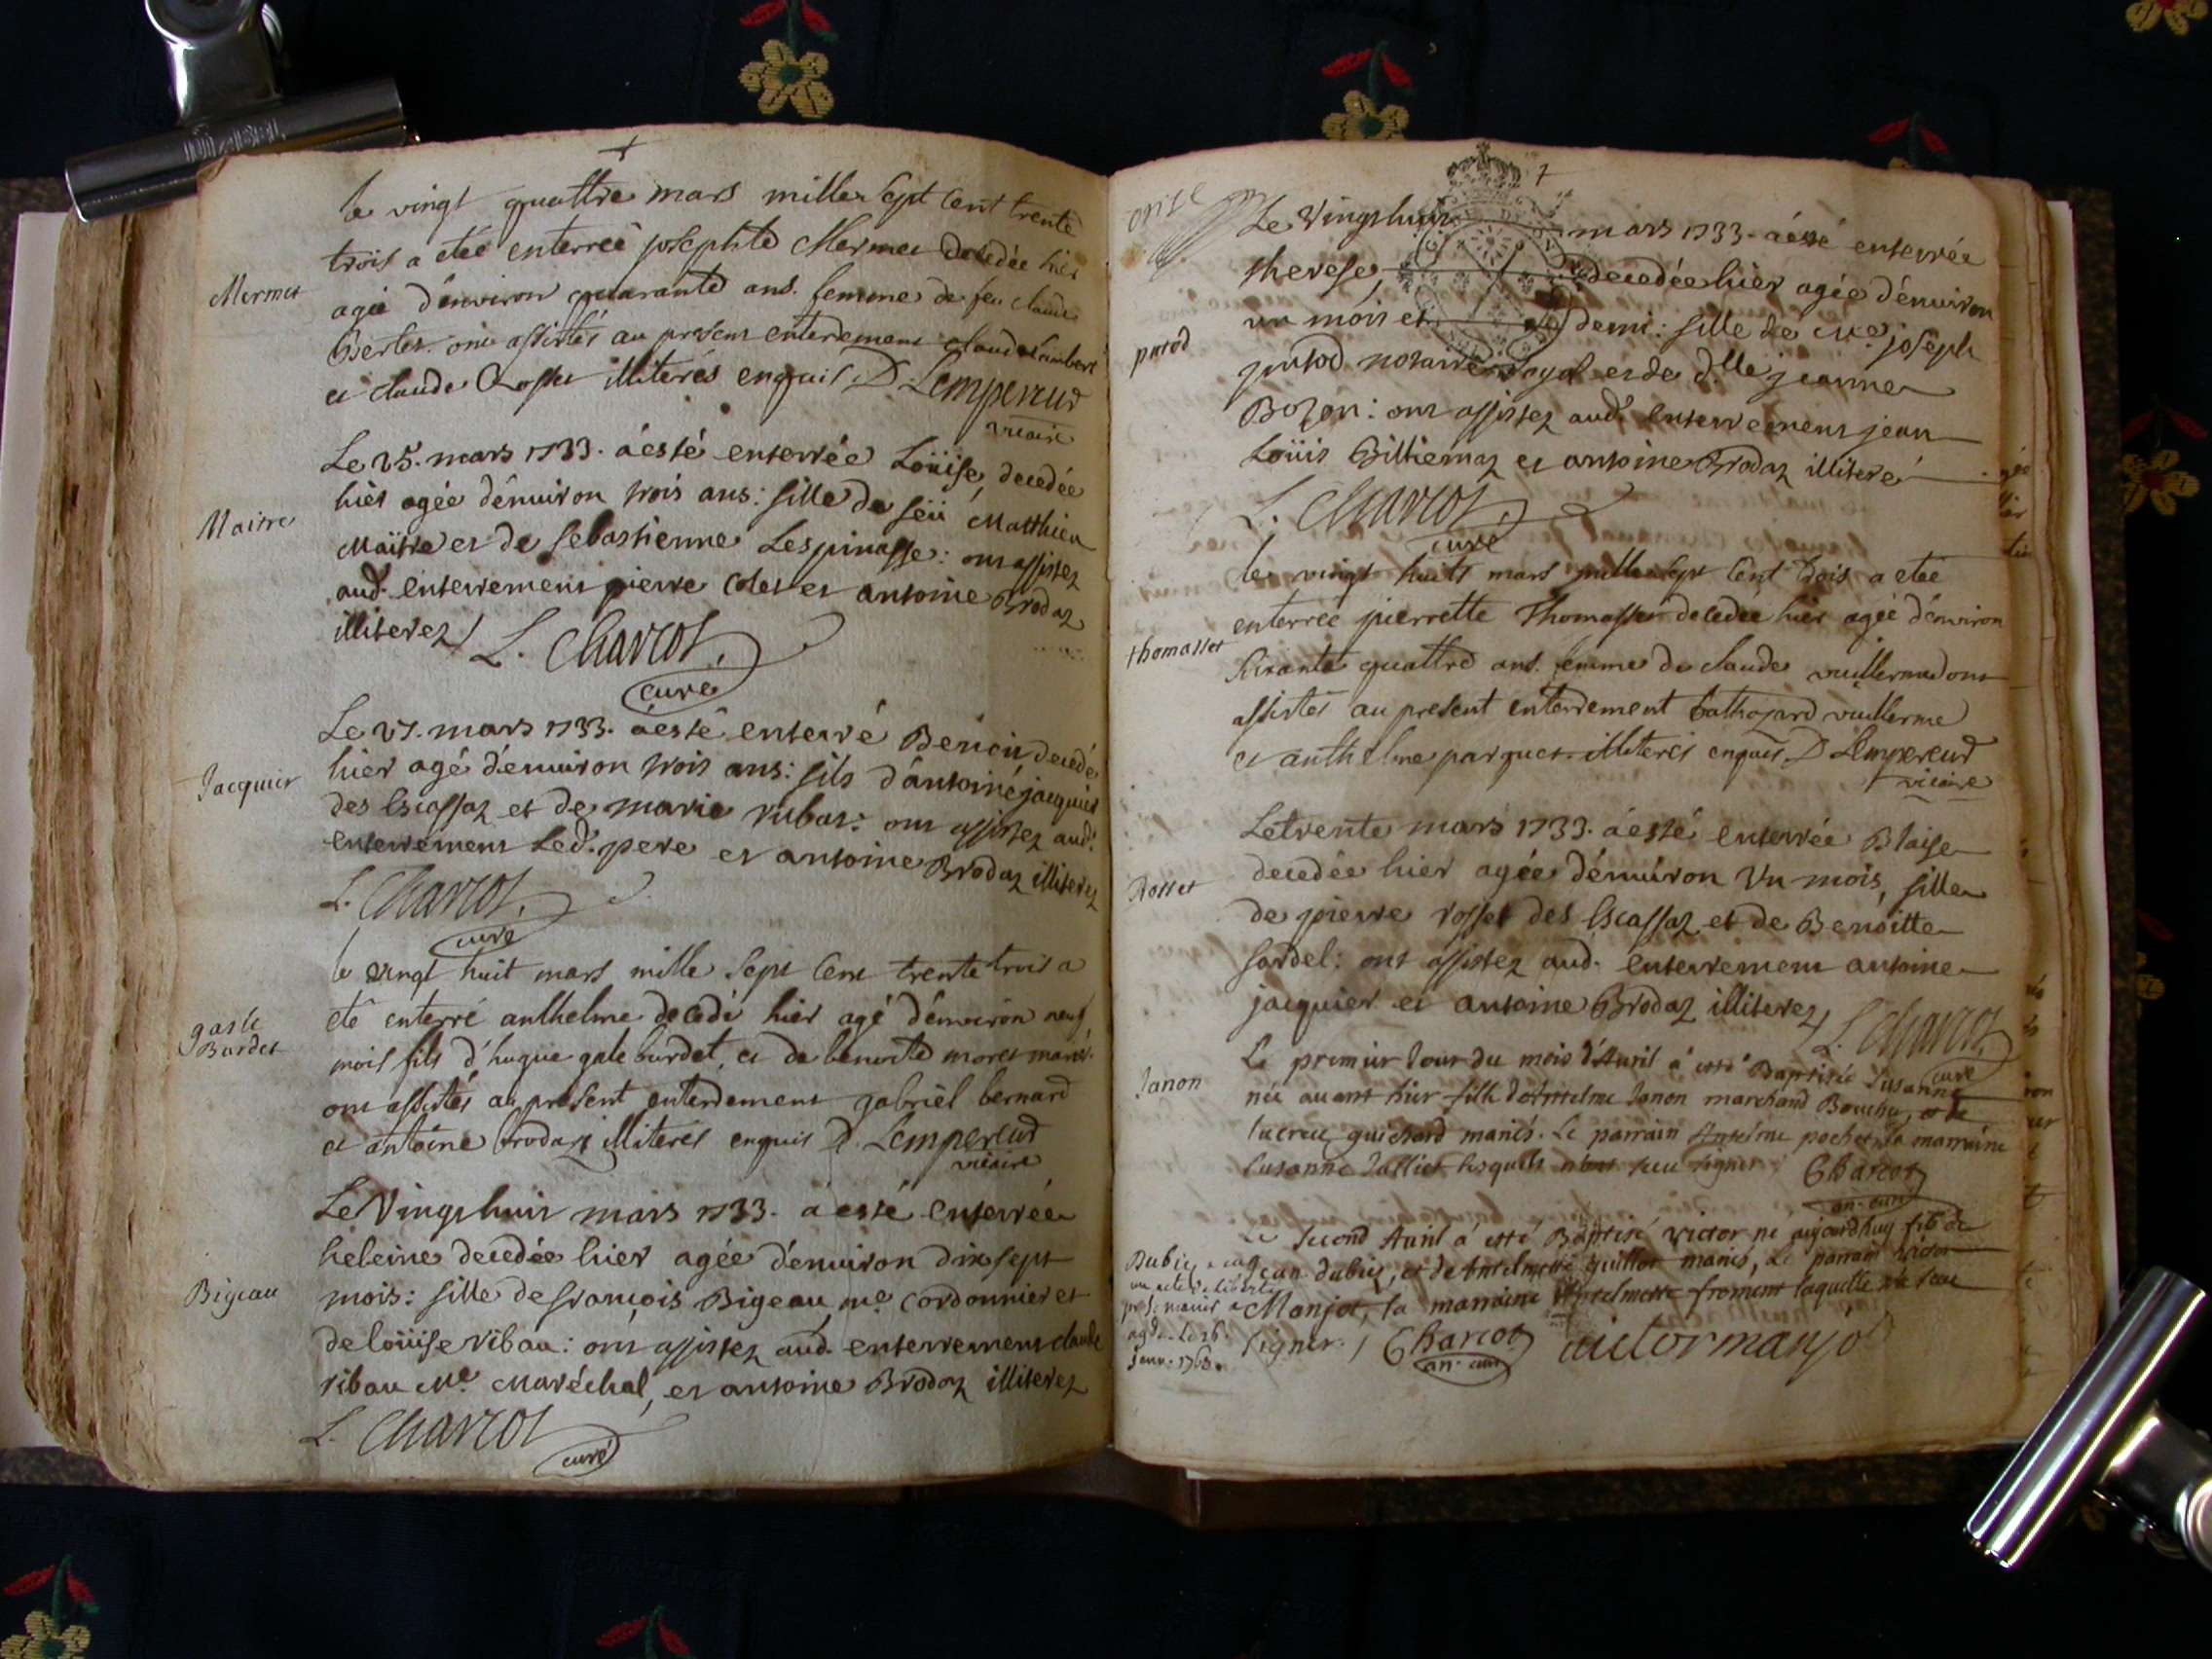 le vingt quattre mars mille sept cent trente
trois a etée enterreé josephte Mermet decedée hier
Mermet
agée d'environ quarante ans. femme de feu claude
Berlet. ont assistés au present enterrement claude Lambert
et claude Rosset illiterés enquis D. Lempereur
vicaire
Le 25. mars 1733. à esté enterrée Loüise, decedée
hier agée d'enuiron trois ans: fille de feü Matthieu
Maitre
Maître et de sebastienne Lespinasse: ont assistez
aud. enterrement pierre Colet et antoine Brodaz
illiterez / L. Charcot,
curé
Le 27. mars 1733. à esté enterré Benoit decedé
hier agé d'enuiron trois ans: fils d'antoine jacquier
Jacquier
des Escassaz et de marie rubat: ont assistez aud.
enterrement Led. pere et antoine Brodaz illiterez
L. Charcot,
curé
le vingt huit mars mille sept cent trente trois a
eté enterré anthelme decedé hier agé d'environ neuf
gaste
Burdet
mois fils d'hugue gale burdet, et de benoite moret mariés.
ont assistés au present enterrement gabriel bernard
et antoine brodaz illiterés enquis D. Lempereur
vicaire
Le Vingt huit mars 1733. à esté enterrée
heleine decedée hier agée d'enuiron dix sept
Bigeau
mois: fille de françois Bigeau, me. cordonnier et
de loüise ribau: ont assistez aud. enterrement claude
ribau Me. Maréchal, et antoine Brodaz illiterez
L. Charcot
curé
onze
7
Le Vingt huit mars 1733. à esté enterrée
therese, decedée hier agée d'enuiron
un mois et demi: fille de Me. joseph
putod
putod notaire Royal et de d.lle jeanne
Bozon: ont assistez aud. enterrement jean
Loüis Billiemaz et antoine Brodaz illiteré
L. Charcot,
curé
le vingt huits mars mille sept cent trois a eteé
enterreé pierrette Thomasset decedeé hier agée d'environ
thomasset
soixante quattre ans. femme de claude vuillerme ont
assistés au present enterrement vuillerme
et anthelme parquet illiterés enquis D Lempereur
vicaire
Le trente mars 1733. à esté enterrée Blaise
decedée hier agée d'enuiron Un mois, fille
Rosset
de pierre rosset des Escassaz et de Benoitte
sardel: ont assistez aud. enterrement antoine
jacquier et antoine Brodaz illiterez / L. Charcot
curé
Le premier Jour du mois d'Auril à esté Baptisée Susanne
Janon
née auant hier fille d'Antelme Janon marchand Boucher, et de
lucrece guichard mariés. Le parrain Antelme pochet la marraine
Susanne Jallier lesquels n'ont sceu signer / Charcot
an. curé
Le second Auril à esté Baptisé victor né aujourdhuy fils de
Jean dubuis, et de Antelmette guillot mariés, Le parrain victor
Manjot, la marraine Antelmette froment laquelle n'a sceu
signer. / Charcot victor manjot
an. curé
Dubuis
un acte
Janv. 1763.